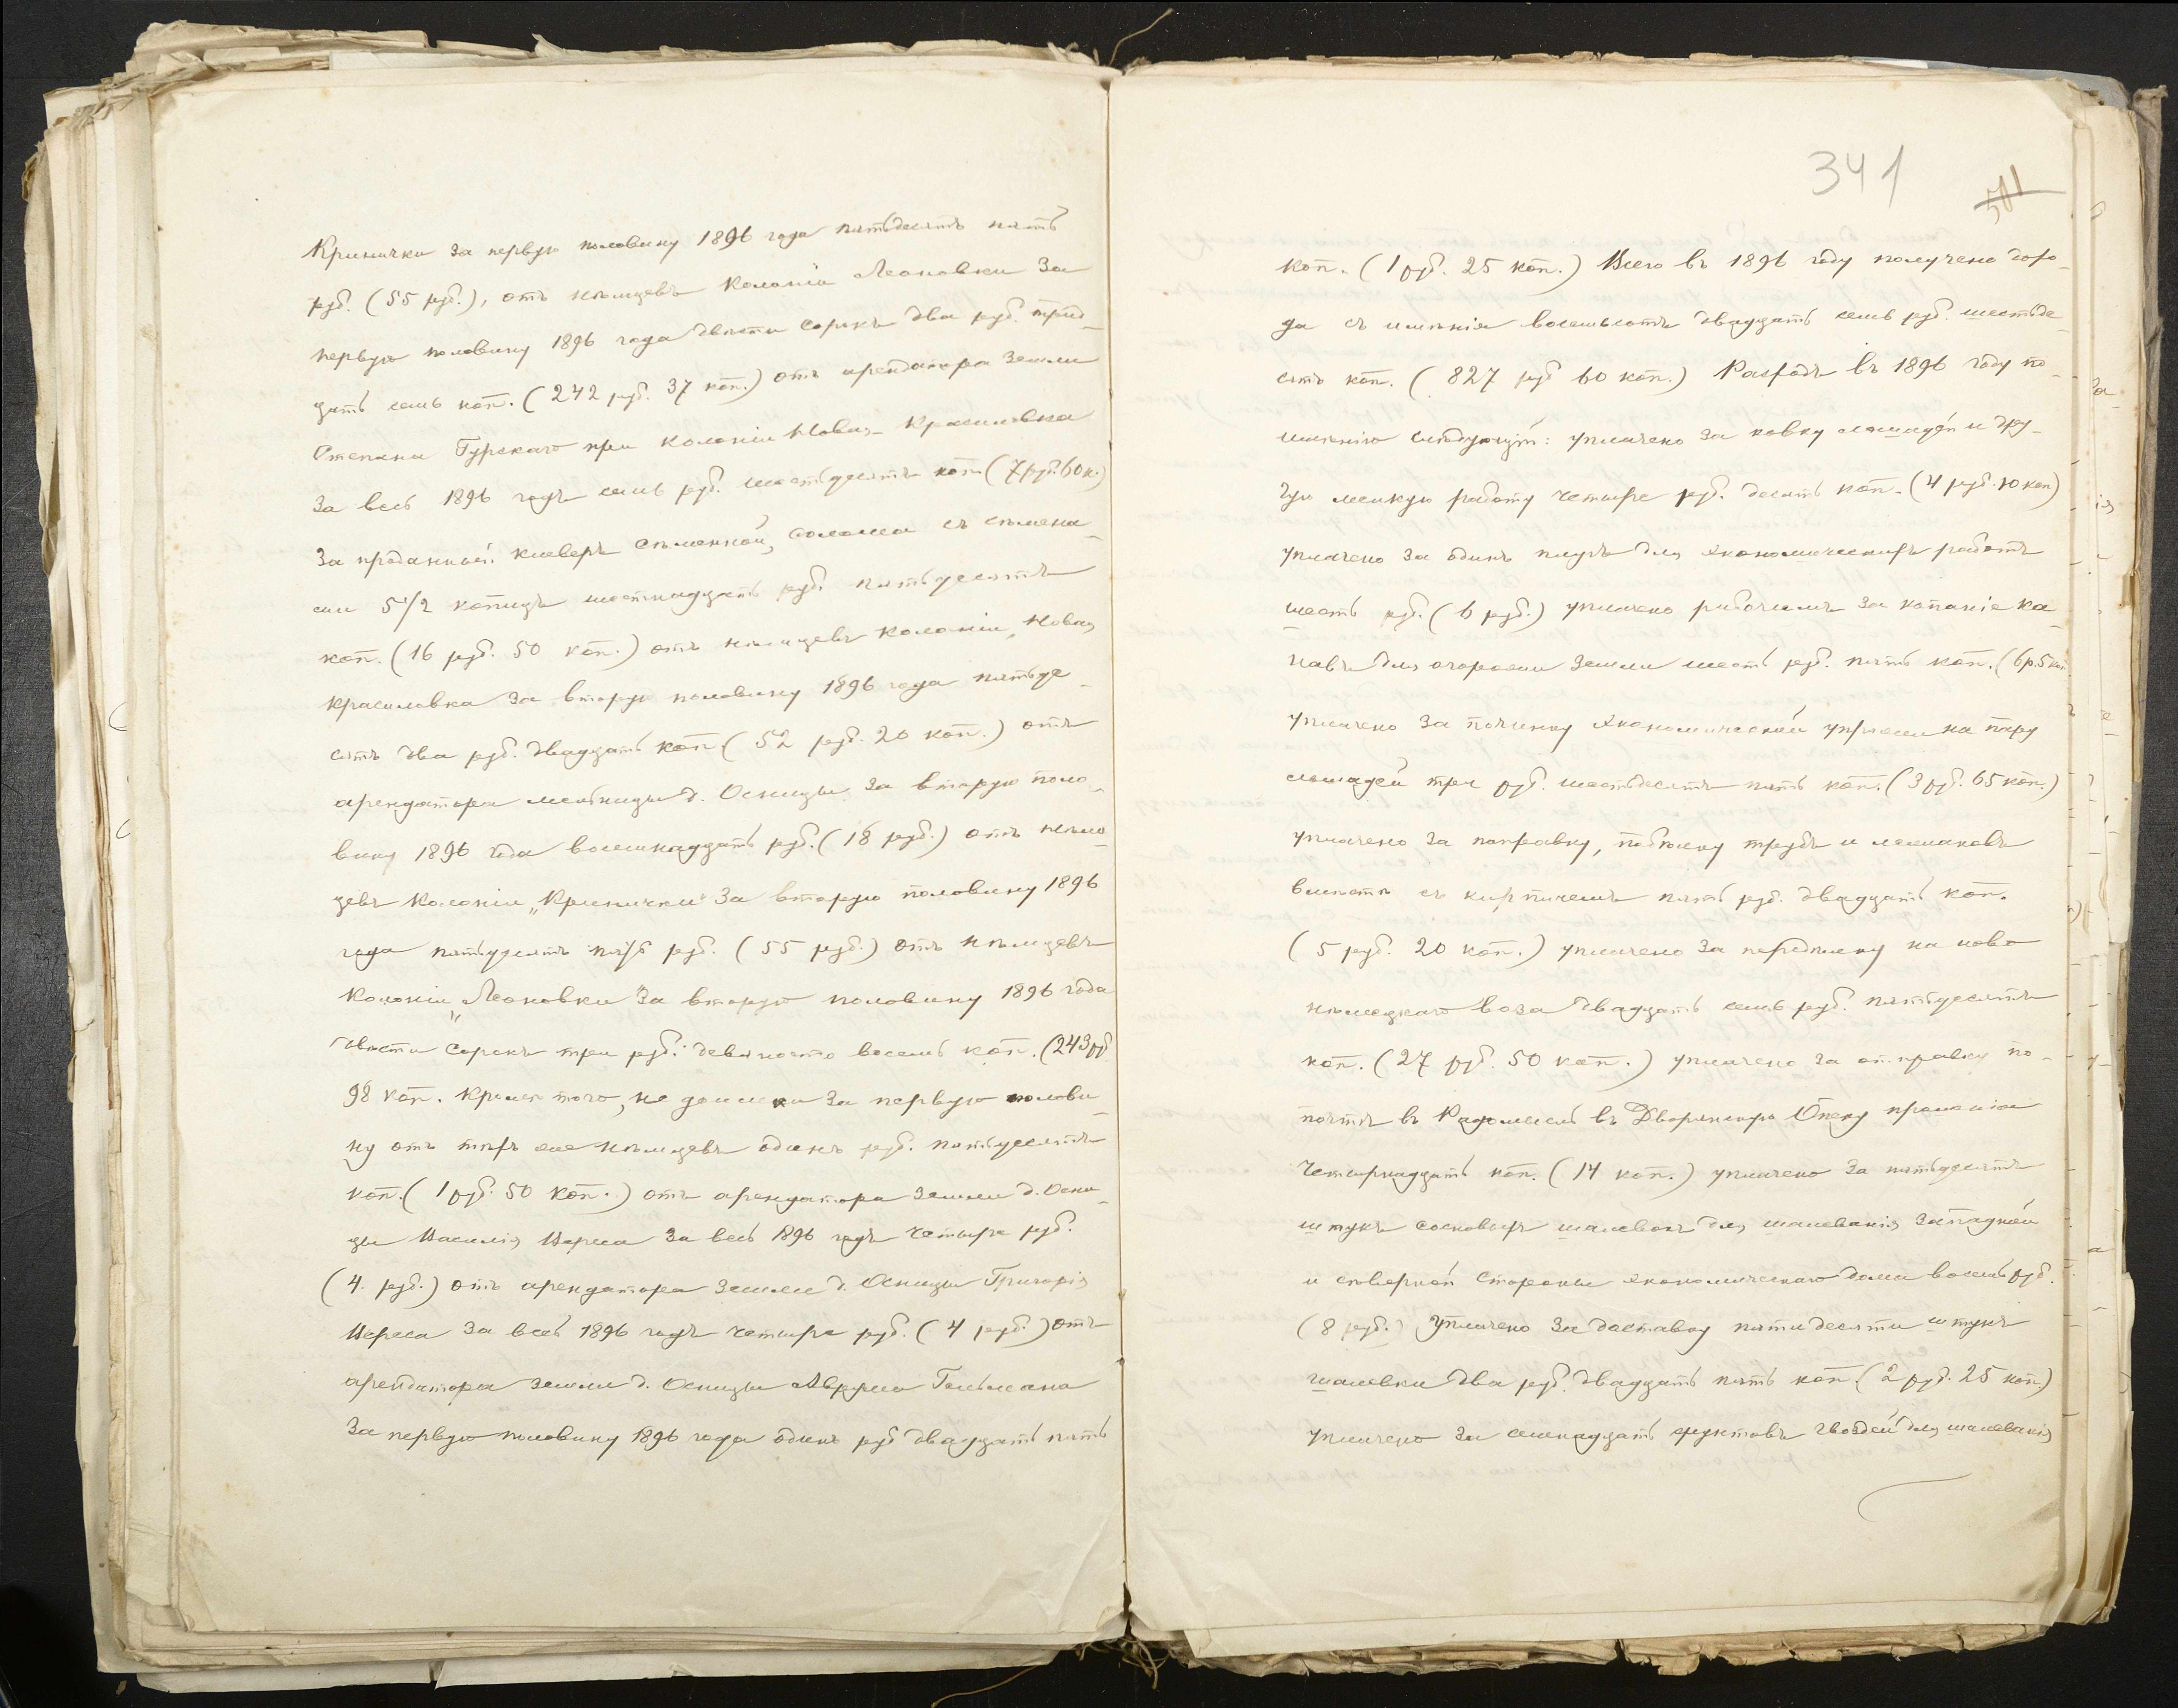 Кринички за первую половину 1896 года пятьдесятъ пять
руб. (55 руб.), отъ нѣмцевъ Колоніи Леоновки за
первую половину 1896 года двѣсти сорокъ два руб. трид_
цать семь коп. (242 руб. 37 коп.) отъ арендатора земли
Степана Гурскаго при колоніи Новая-Красиловка
За весь 1896 годъ семь руб. шестьдесятъ коп (7 руб. 60 к.)
За проданный клеверъ сѣменной, солома съ сѣмена_
ми 5 1/2 копицъ шестнадцать руб. пятьдесятъ
коп. (16 руб. 50 коп.) отъ нѣмцевъ колоніи „Новая
Красиловка за вторую половину 1896 года пятьде_
сятъ два руб. двадцать коп (52 руб. 20 коп.) отъ
арендатора мельницы д. Осницы за вторую поло_
вину 1896 года восемнадцать руб. (18 руб.) отъ нѣм_
цевъ Колоніи „Кринички" За вторую половину 1896
года пятьдесятъ пять руб. (55 руб.) отъ нѣмцевъ
Колоніи „Леоновки" За вторую половину 1896 года
двѣсти сорокъ три руб. девяносто восемь коп. (243 руб
98 коп. Кромѣ того, не за первую полови_
ну отъ тѣхъ же нѣмцевъ одинъ руб. пятьдесятъ
коп. (1 руб. 50 коп.) отъ арендатора земли д. Осни_
цы Василія за весь 1896 годъ четыре руб.
(4. руб.) отъ арендатора земли д. Осницы Григорія
за весь 1896 годъ четыре руб. (4 руб.) отъ
арендатора земли д. Осницы Гельмана
За первую половину 1896 года одинъ руб двадцать пять
341
501
коп. (1 руб. 25 коп.) Всего въ 1896 году получено дохо_
да съ имѣнія восемьсотъ двадцать семь руб. шестьде_
сятъ коп. (827 руб 60 коп.) Расходъ въ 1896 году по_
имѣнію слѣдующій: уплачено за ковку лошадей и дру_
гую мелкую работу четыре руб. десять коп. (4 руб. 10 коп)
уплачено за одинъ плугъ для экономическихъ работъ
шесть руб. (6 руб.) уплачено рабочимъ за копаніе ка_
навъ для земли шесть руб. пять коп. (6 р. 5 коп.
уплачено за починку экономической упряжи на пару
лошадей три руб. шестьдесятъ пять коп. (3 руб. 65 коп.)
уплачено за поправку, побѣлку трубъ и лежаковъ
вмѣстѣ съ кирпичемъ пять руб. двадцать коп.
(5 руб. 20 коп.) уплачено за передѣлку на ново
нѣмецкаго воза двадцать семь руб. пятьдесятъ
коп. (27 руб. 50 коп.) уплачено за отправку по-
почтѣ въ Радомысль въ Дворянскую Опеку прошенія
Четырнадцать коп. (14 коп.) уплачено за пятьдесятъ
штукъ сосновыхъ шалевокъ для шалеванія западной
и сѣверной стороны экономическаго дома восемь руб.
(8 руб.) Уплачено за доставку пятидесяти штукъ
шалевки два руб. двадцать пять коп. (2 руб. 25 коп.)
уплачено за семнадцать фунтовъ гвоздей для шалеванія